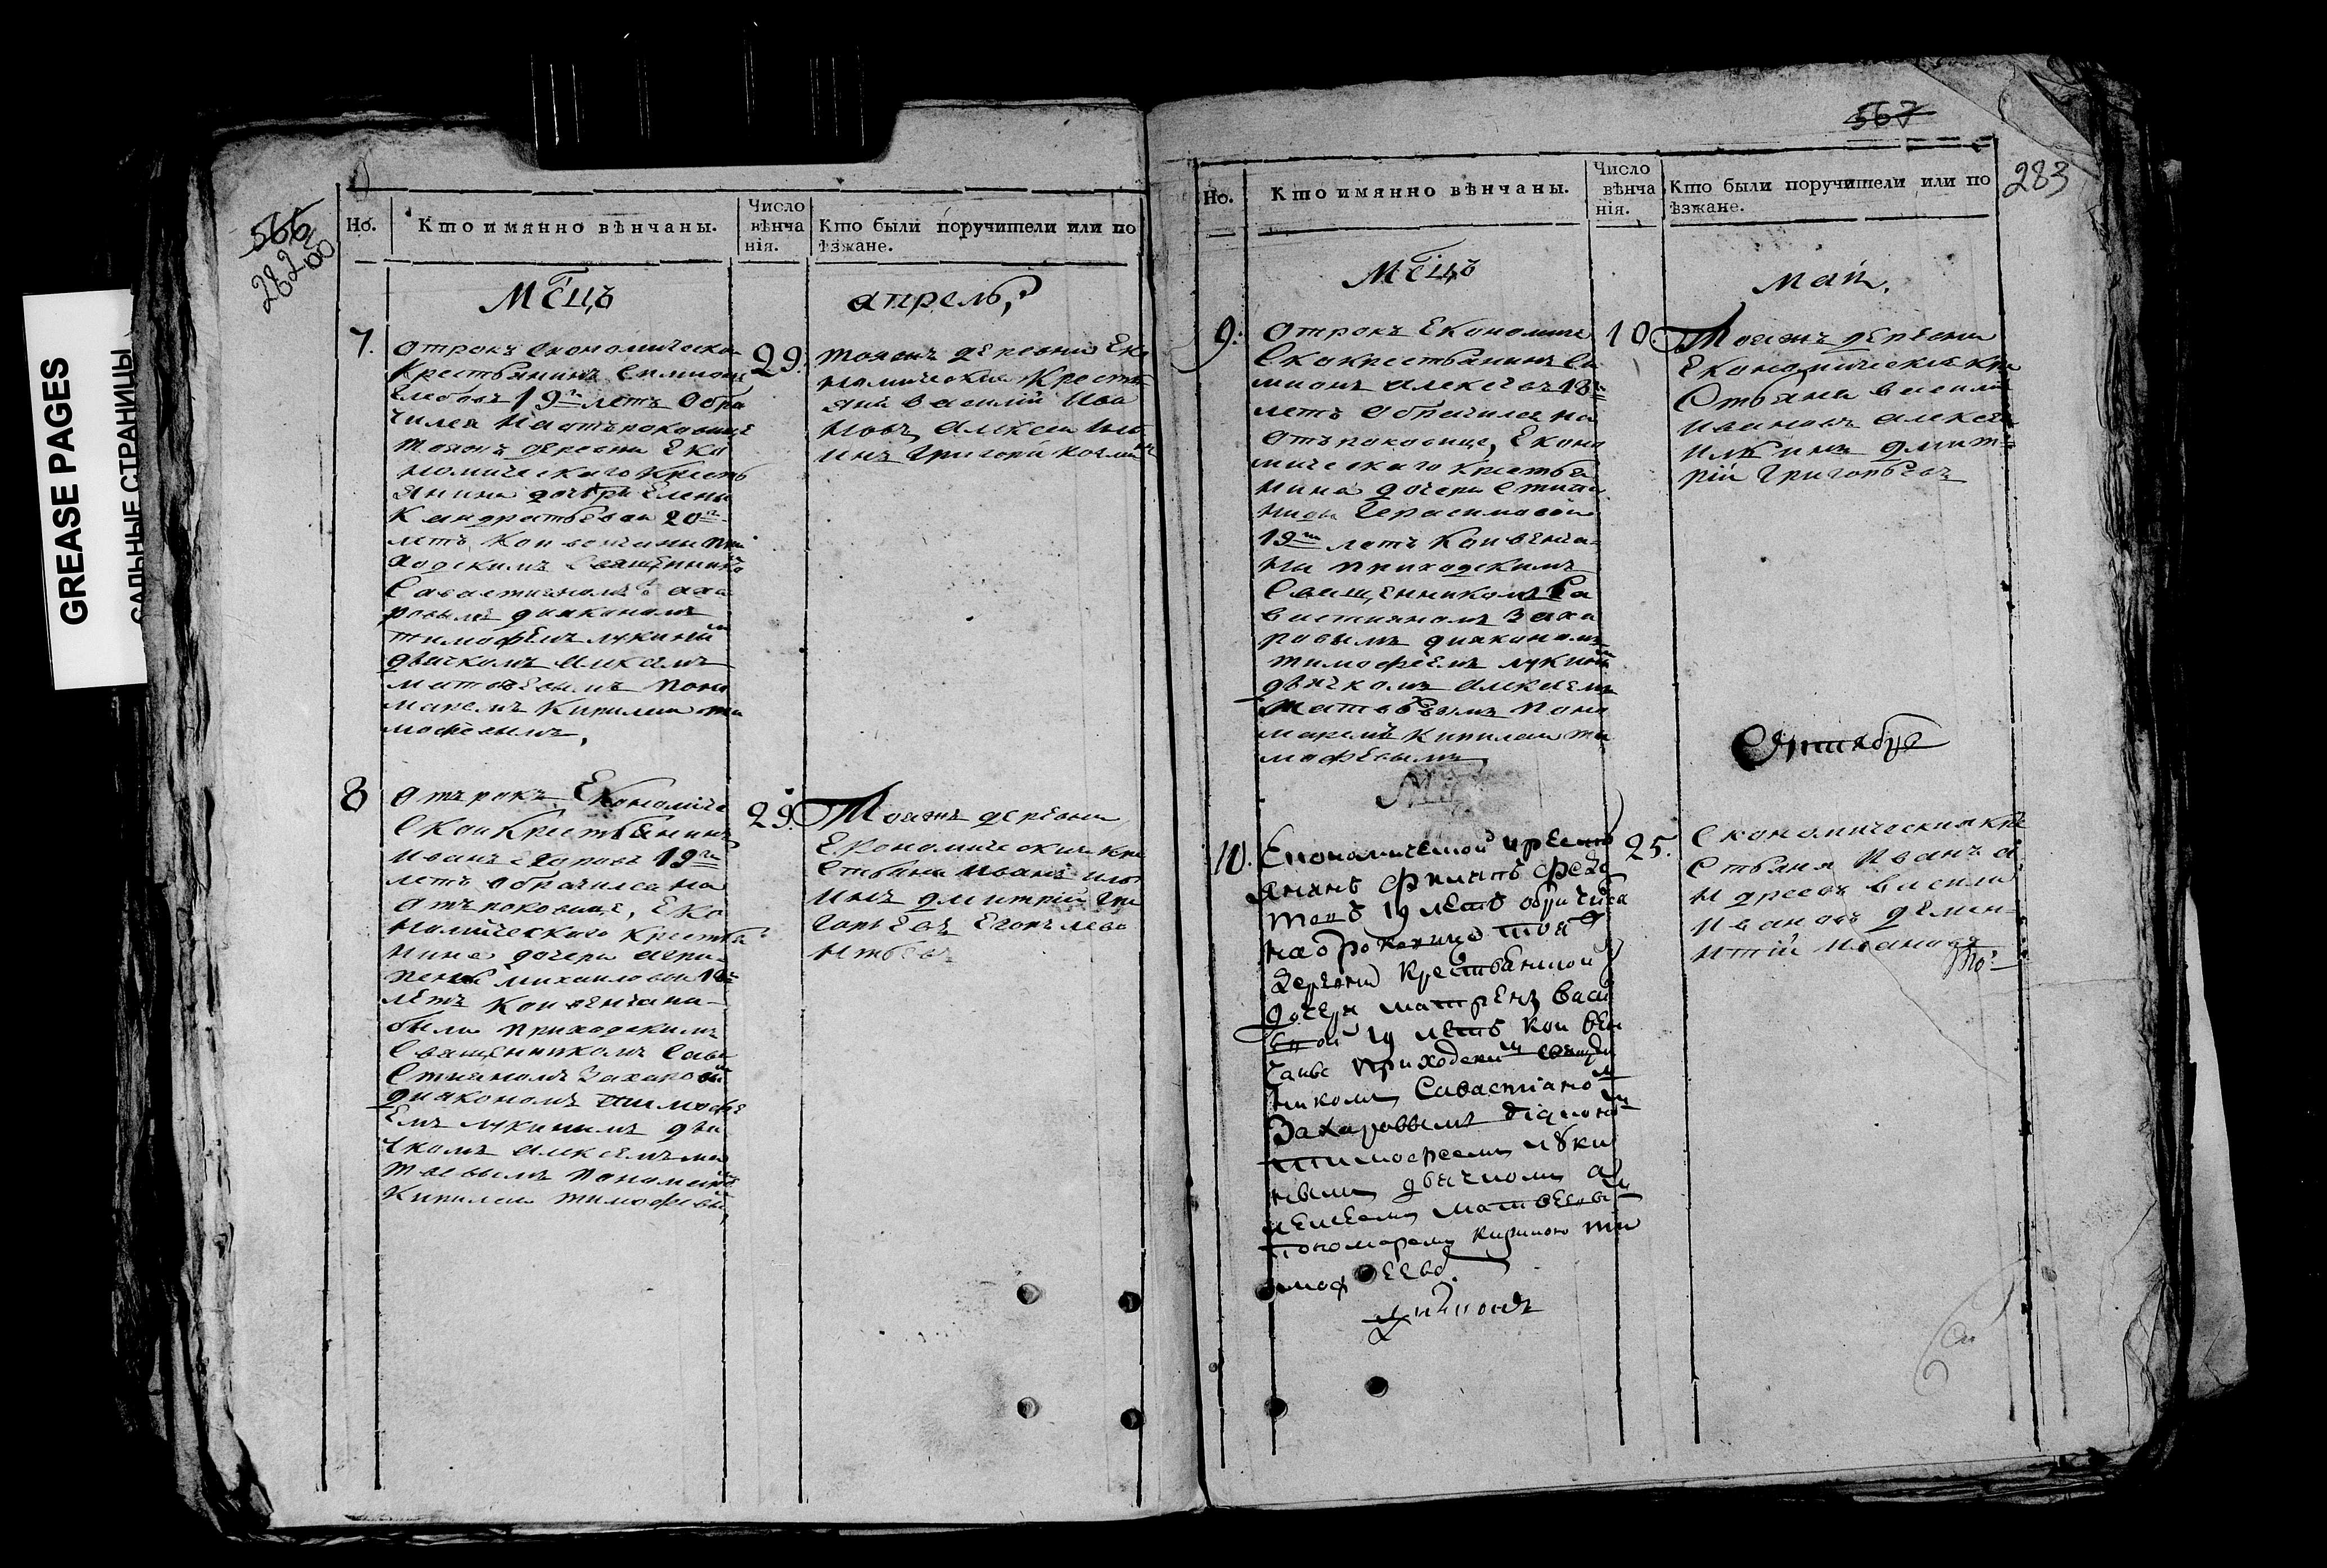 GREASE PAGES
САЛЬНЫЕ СТРАНИЦЫ
566
282 об
Но.
Кто имянно вѣнчаны.
Число вѣнча нія.
Кто были поручители или по ѣзжане.
Мсцъ
апрель,
7.
отрокъ економическа
крестьянинъ Симионъ
Глебовъ 19ти летъ обра
чился на отъроковице
тояжъ деревни Еко
номическаго кресть
янина дочери Елены
Кандратьевой 20ти
летъ кои венчаны при
ходскимъ священнико
Савастианомъ Заха
ровымъ диакономъ
тимофѣемъ лукинымъ
дьячкомъ алексѣемъ
матвѣевымъ поно
маремъ Кирилом ти
мофеевымъ,
29.
тояжъ деревни Еко
номические Кресть
яни василий Ива
новъ, алѣксей Иль
инъ Григорий
8
отърокъ Економиче
ской Крестьянинъ
Иванъ 19ти
летъ обрачился на
отъроковице, Еко
номическаго Крестья
нина дочери агри
пены михаиловои 18ти
летъ кои венчаны
были приходскимъ
Священникомъ Сава
стианомъ Захаровы
диакономъ тимофѣ
емъ лукинымъ дья
чкомъ алексѣемъ ма
твевымъ пономарем
Кирилом тимофѣевы,
29.
Тояжъ деревни
Економический кре
стьяни Иванъ иль
инъ дмитрий Гри
горьевъ Егоръ лево
нтьевъ
567
283
Но.
Кто имянно вѣнчаны.
Число вѣнча нія.
Кто были поручители или по ѣзжане.
Мсцъ
май.
9.
отрокъ Економиче
ской крестьянинъ Си
мионъ алексѣевъ 18ти
летъ обрачился на
отъроковице, Еконо
мическаго крестья
нина дочери Степа
ниды Герасимовой
19ти летъ кои венча
ны приходскимъ
Священникомъ Са
вастианомъ Заха
ровымъ диакономъ
тимофѣемъ лукины
дьячкомъ алексѣемъ
Матвѣвымъ поно
маремъ Кирилом ти
мофѣевымъ
10.
Тояжъ деревни
Економические кре
стьяни василий
ивановъ алексѣй
ильинъ дмит
рій Григорьевъ
Мц
Сентябре
10.
Економической кресть
янинъ Филипъ Федо
товъ 19 летъ обрачился
на отроковице тоя
деревни Крестьянской
дочери матрены васи
евой 19 летъ кои вен
чаны приходским священ
никомъ Савастианом
Захаровымъ діаконом
тимофеемъ луки
нымъ дьячкомъ а
лексеемъ матвеевы
Пономаремъ кирилою ти
мофеевы.
25.
Економическия кре
стьяня Иванъ а
ндреевъ василий
Ивановъ демен
нтий Ивановъ